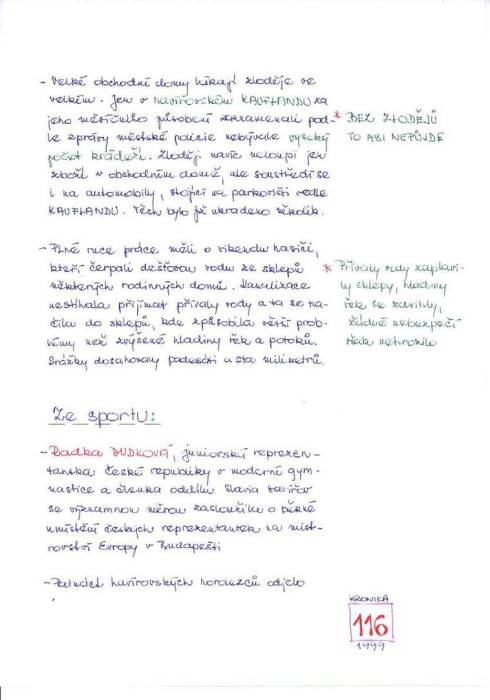 - Velké obchodní domy lákají zloděje ve
velkém. Jen v havířovském KAUFLANDU za
jeho měsíčního působení zaznamenali pod-
le zprávy městské policie nebývale vysoký
počet krádeží. Zloději navíc neloupí jen
zboží v obchodním domě, ale soustředí se
i na automobily, stojící na parkovišti vedle
KAUFLANDU. Těch bylo již ukradeno několik.
* BEZ ZLODĚJŮ
TO ASI NEPŮJDE
- Plné ruce práce měli o víkendu hasiči,
kteří čerpali dešťovou vodu ze sklepů
některých rodinných domů. Kanalizace
nestíhala přijímat přívaly vody a ta se na-
tlačila do sklepů, kde způsobila větší prob-
lémy než zvýšené hladiny řek a potoků.
Srážky dosahovaly padesáti a sta milimetrů.
* Přívaly vody zaplavi-
ly sklepy, hladiny
řek se zvedly,
žádné nebezpečí
však nehrozilo
Ze sportu:
- Radka DUDKOVÁ, juniorská reprezen-
tantka České republiky v moderní gym-
nastice a členka oddílu Slavia Havířov
se významnou měrou zasloužila o pěkné
umístění českých reprezentantek na mist-
rovství Evropy v Budapešti
- Patnáct havířovských horolezců odjelo
KRONIKA
116
1999